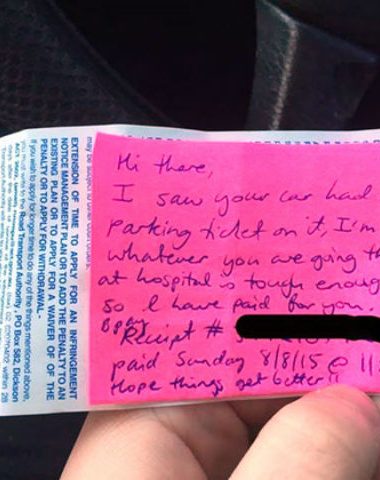 Hi there,
I saw your car had
parking ticket on it, I'm
whatever you are going th
at hospital is tough enoug
so I have paid for you.
Bpay
Receipt #
paid Sunday 8/8/15 @ 11
Hope things get better!!
may be subject to other court orders.
EXTENSION OF TIME TO APPLY FOR AN INFRINGEMENT
NOTICE MANAGEMENT PLAN OR TO ADD THE PENALTY TO AN
EXISTING PLAN OR TO APPLY FOR A WAIVER OF OF THE
PENALTY OR TO APPLY FOR WITHDRAWAL -
If you wish to apply for longer time to do any of the things mentioned above,
you must write to the Road Transport Authority, PO Box 582, Dickson
within 28
days after the date of
Transport Authority